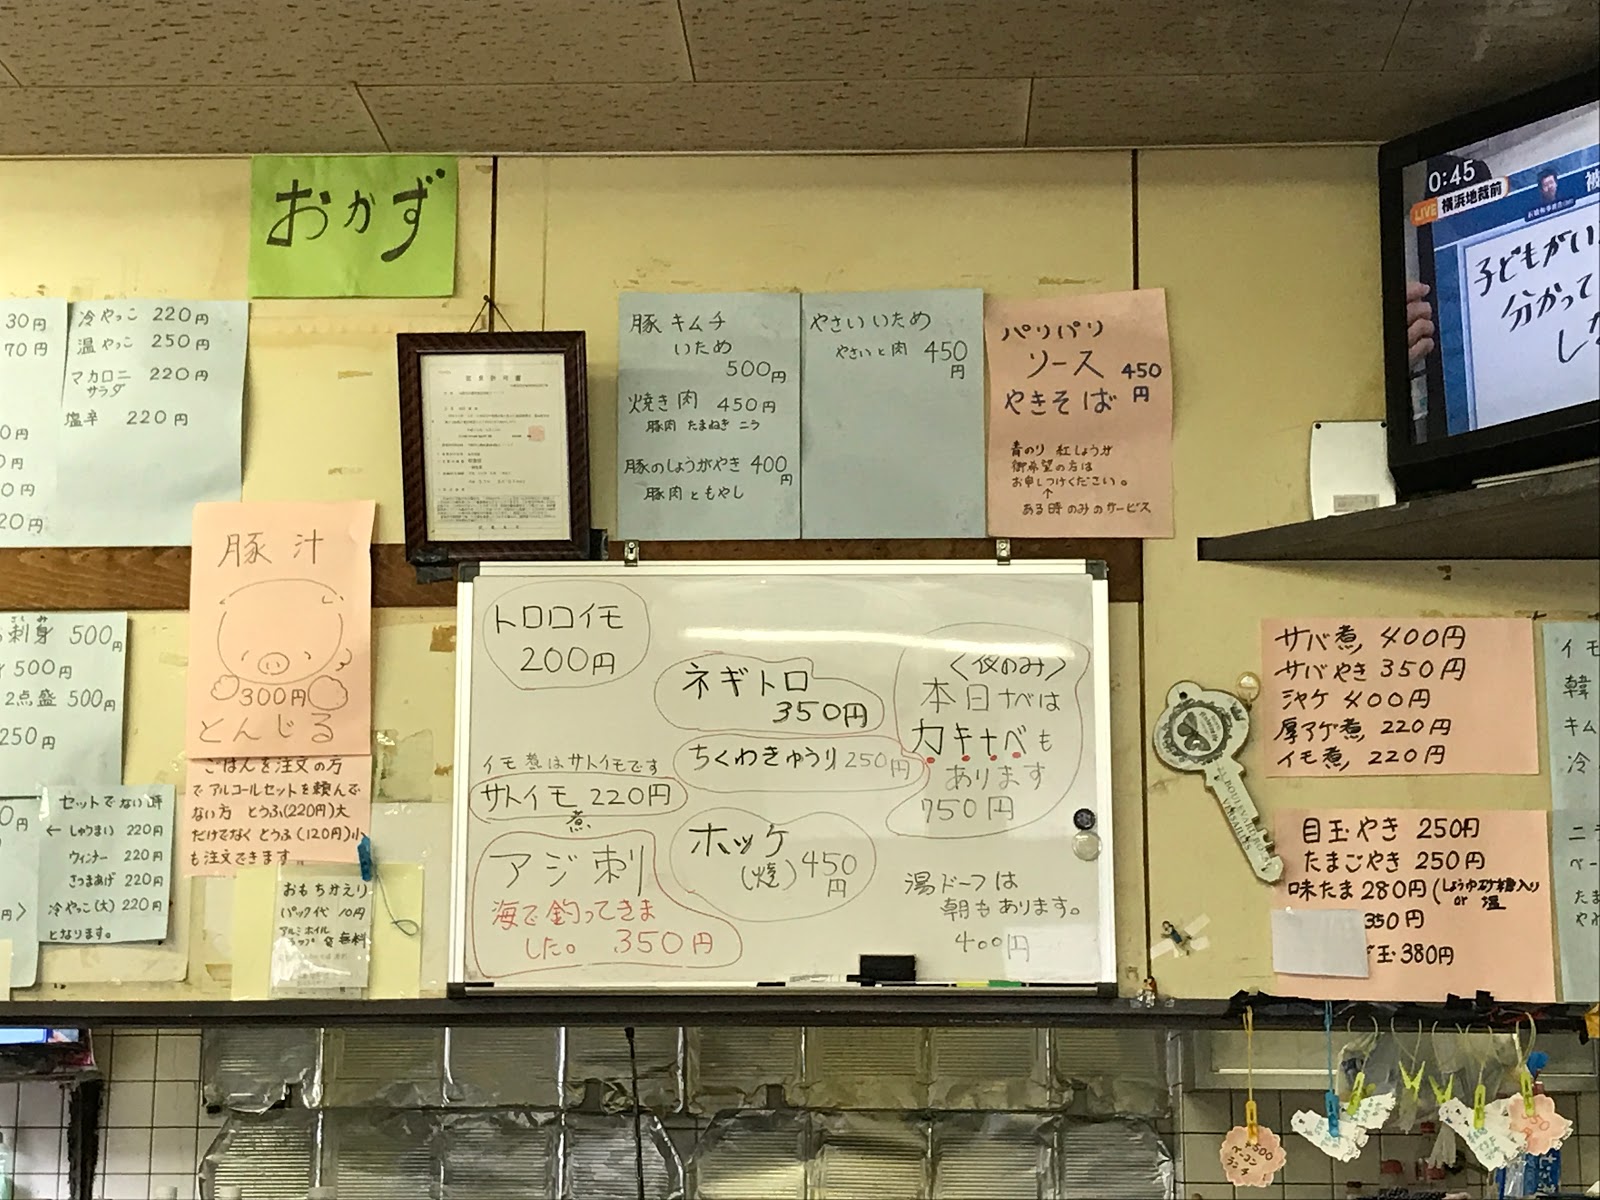 おかず
30円
70円
0円
0円
20円
冷やっこ 220円
温やっこ 250円
マカロニ 220円
サラダ
塩辛 220円
豚キムチ
いため
500円
焼き肉 450円
豚肉 たまねぎ ニラ
豚のしょうがやき 400円
豚肉ともやし
やさいいため
やさいと肉 450円
パリパリ
ソース
やきそば
450円
青のり 紅しょうが
御希望の方は
お申しつけください。
↑
ある時のみのサービス
0:45
LIVE 横浜地裁前
被
子どもがい
分かって
し
刺身 500円
500円
2点盛 500円
250円
豚汁
300円
とんじる
ごはんを注文の方
でアルコールセットを頼んで
ない方 とうふ(220円)大
だけでなくとうふ(120円)小
も注文できます。
セットでない時
← しゅうまい 220円
ウィンナー 220円
さつまあげ 220円
冷やっこ(大) 220円
となります。
おもちかえり
パック代 10円
アルミホイル
ラップ 無料
トロロイモ
200円
ネギトロ
350円
ちくわきゅうり 250円
イモ煮はサトイモです
サトイモ 220円
煮
アジ刺
海で釣ってきま
した。 350円
ホッケ
(焼) 450円
<夜のみ>
本日ナベは
カキナベも
あります
750円
湯ドーフは
朝もあります。
400円
サバ煮 400円
サバやき 350円
シャケ 400円
厚アゲ煮 220円
イモ煮 220円
目玉やき 250円
たまごやき 250円
味たま 280円(しょうゆ砂糖入り
or 塩
350円
玉 380円
イモ
韓
キム
冷
ニラ
ベー
たま
やき
¥500
ベーコン
ランチ